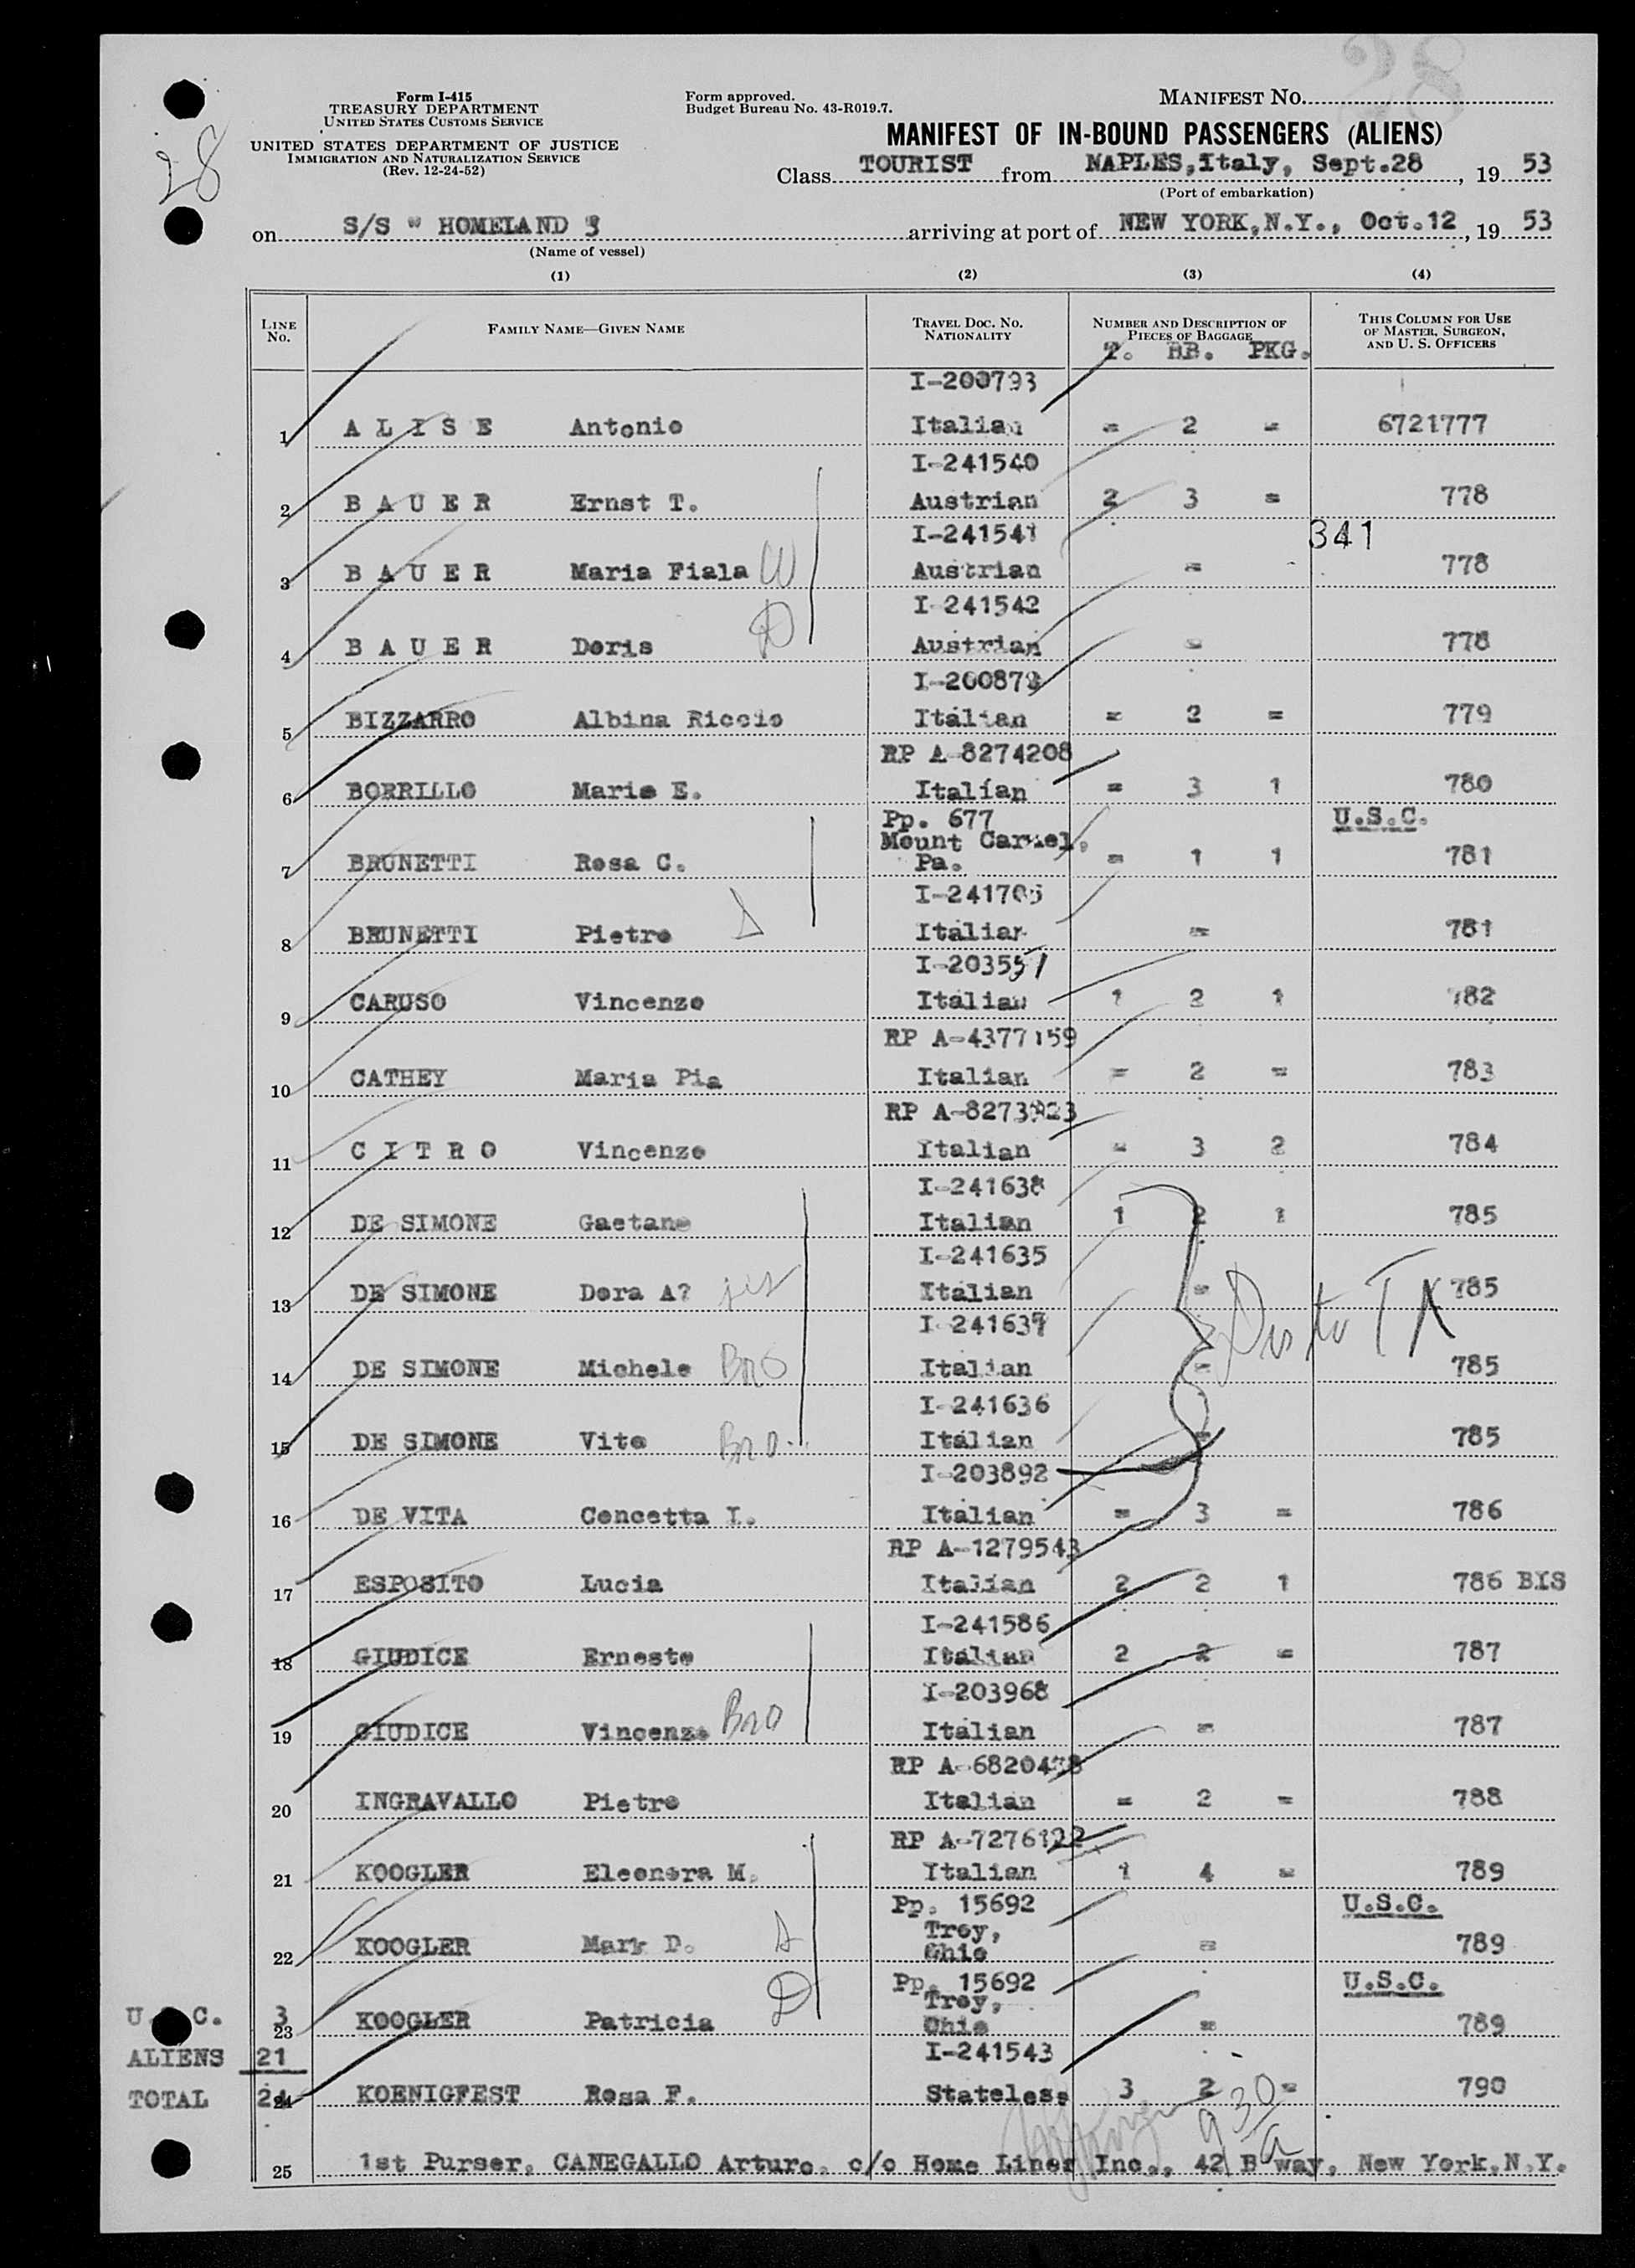 28
Form I-415
TREASURY DEPARTMENT
UNITED STATES CUSTOMS SERVICE
UNITED STATES DEPARTMENT OF JUSTICE
IMMIGRATION AND NATURALIZATION SERVICE
(Rev. 12-24-52)
Form approved.
Budget Bureau No. 43-R019.7.
28
MANIFEST No.
MANIFEST OF IN-BOUND PASSENGERS (ALIENS)
Class TOURIST from NAPLES, Italy, Sept.28, 19 53
(Port of embarkation)
on S/S " HOMELAND arriving at port of NEW YORK, N.Y., Oct.12, 19 53
(Name of vessel)
(1) (2) (3) (4)
LINE No. FAMILY NAME—GIVEN NAME TRAVEL DOC. No. NATIONALITY NUMBER AND DESCRIPTION OF PIECES OF BAGGAGE THIS COLUMN FOR USE OF MASTER, SURGEON, AND U. S. OFFICERS
T. BB. PKG.
I-200793
1 A L I S E Antonio Italian = 2 = 6721777
I-241540
2 B A U E R Ernst T. Austrian 2 3 = 778
I-241541 341
3 B A U E R Maria Fiala W Austrian = 778
I-241542
4 B A U E R Doris D Austrian = 778
I-20087
5 BIZZARRO Albina Riccio Italian = 2 = 779
RP A-8274208
6 BORRILLO Maria E. Italian = 3 1 780
Pp. 677 U.S.C.
Mount Carmel,
7 BRUNETTI Rosa C. Pa. = 1 1 781
I-241705
8 BRUNETTI Pietro Italian = 781
I-203551
9 CARUSO Vincenzo Italian 1 2 1 782
RP A-4377159
10 CATHEY Maria Pia Italian = 2 = 783
RP A-8273923
11 C I T R O Vincenzo Italian = 3 2 784
I-241638
12 DE SIMONE Gaetano Italian 1 2 1 785
I-241635
13 DE SIMONE Dora A? Italian = 785
I-241637
14 DE SIMONE Michele Bro Italian = 785
I-241636
15 DE SIMONE Vito Bro. Italian = 785
I-203892
16 DE VITA Concetta I. Italian = 3 = 786
RP A-1279543
17 ESPOSITO Lucia Italian 2 2 1 786 BIS
I-241586
18 GIUDICE Ernesto Italian 2 2 = 787
I-203968
19 GIUDICE Vincenzo Bro Italian = 787
RP A-6820438
20 INGRAVALLO Pietro Italian = 2 = 788
RP A-7276122
21 KOOGLER Eleonora M. Italian 1 4 = 789
Pp. 15692 U.S.C.
Troy,
22 KOOGLER Mark D. Ohio = 789
Pp. 15692 U.S.C.
Troy,
U.S.C. 3
23 KOOGLER Patricia D Ohio = 789
ALIENS 21 I-241543
TOTAL 24 KOENIGFEST Rosa F. Stateless 3 2 = 790
9 30 a
25 1st Purser, CANEGALLO Arturo, c/o Home Lines Inc., 42 B'way, New York, N.Y.